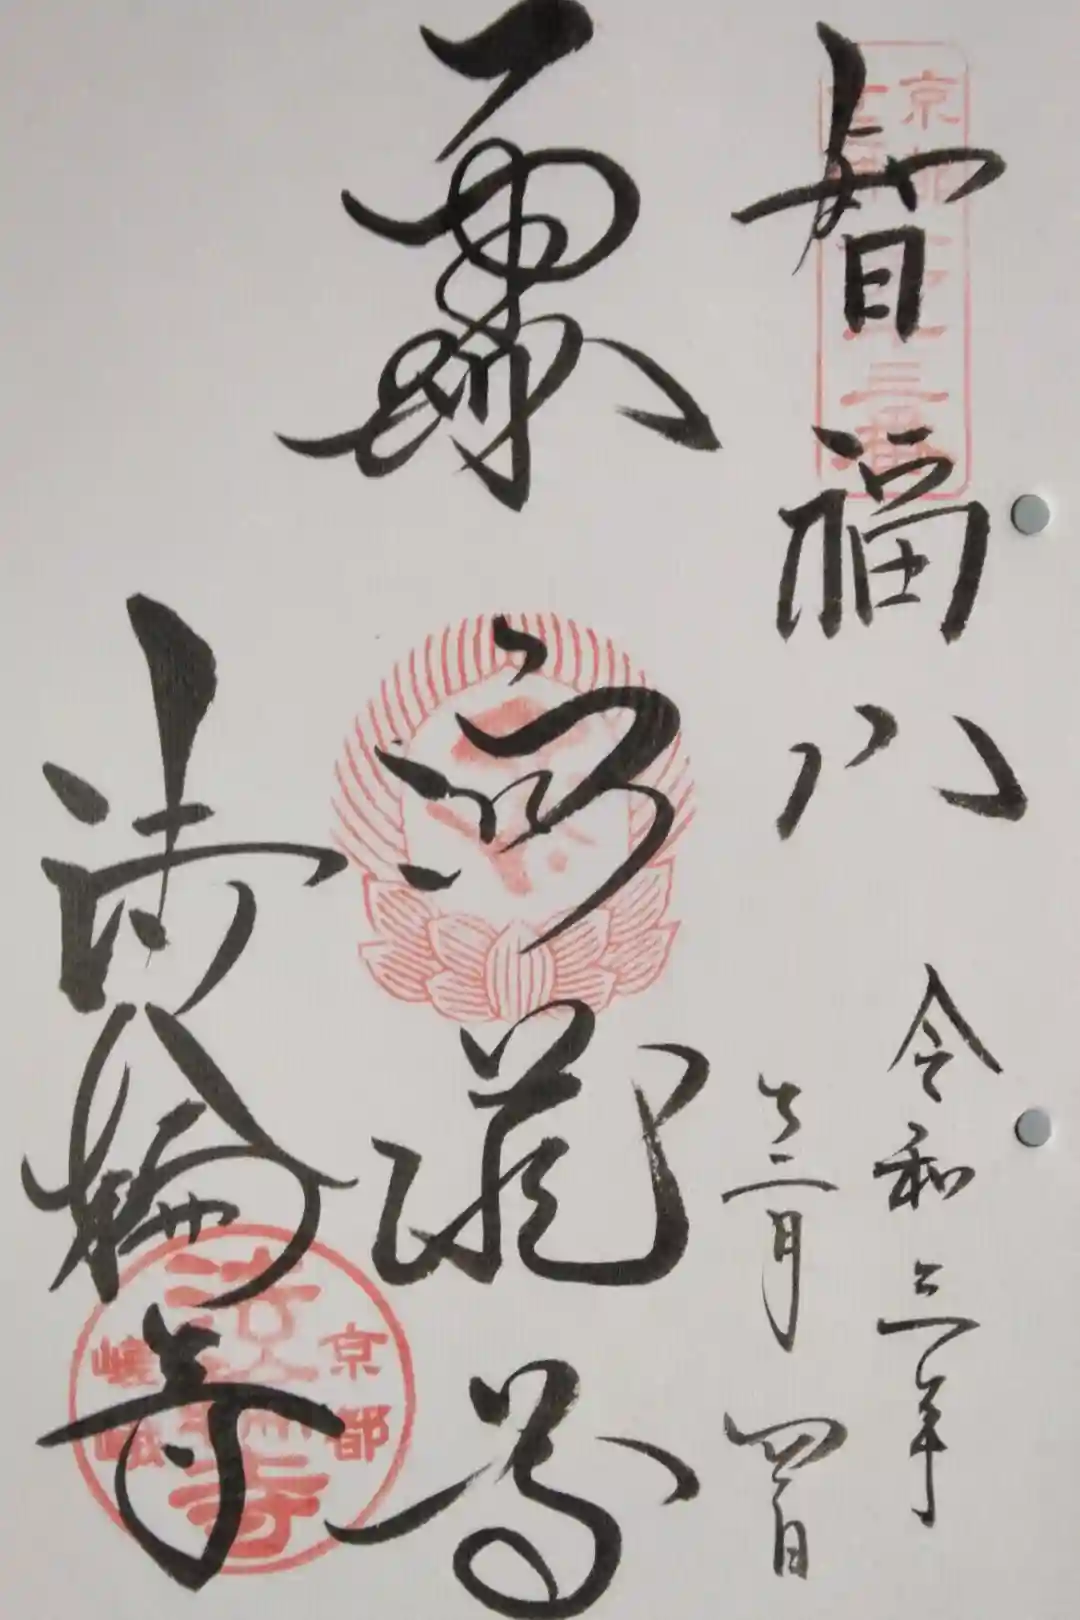 京都
三番
智福山
令和三年
月四日
虚空蔵尊
法輪寺
京都
法輪寺
嵯峨